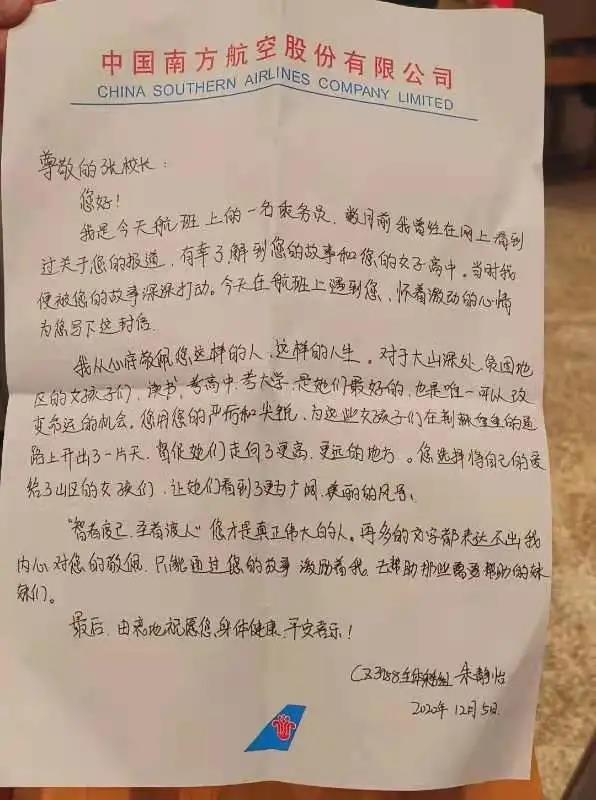 中国南方航空股份有限公司
CHINA SOUTHERN AIRLINES COMPANY LIMITED
尊敬的张校长：
您好！
我是今天航班上的一名乘务员，数月前我曾经在网上看到
过关于您的报道，有幸了解到您的故事和您的女子高中。当时我
便被您的故事深深打动。今天在航班上遇到您，怀着激动的心情
为您写下这封信。
我从心底敬佩您这样的人，这样的人生。对于大山深处，贫困地
区的女孩子们，读书，考高中，考大学，是她们最好的，也是唯一可以改
变命运的机会。您用您的严厉和尖锐，为这些女孩子们在荆棘丛生的道
路上开出了一片天，督促她们走向了更高，更远的地方。您选择将自己的爱
给了山区的女孩们，让她们看到了更为广阔，美丽的风景。
“智者度己，圣者渡人”您才是真正伟大的人。再多的文字都表达不出我
内心对您的敬佩，只能通过您的故事激励着我，去帮助那些需要帮助的妹
妹们。
最后，由衷地祝愿您，身体健康，平安喜乐！
CZ3988 朱静怡
2020年12月5日